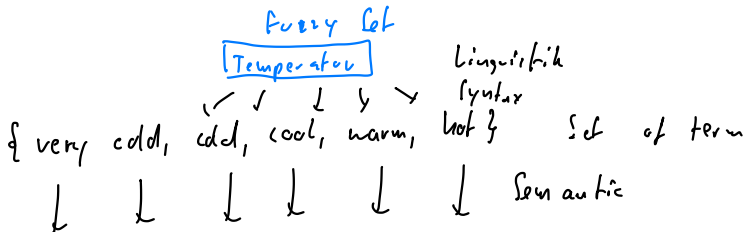 Fuzzy Set
Temperatur
Linguistik
Syntax
{ very cold, cold, cool, warm, hot } Set of term
Semantic